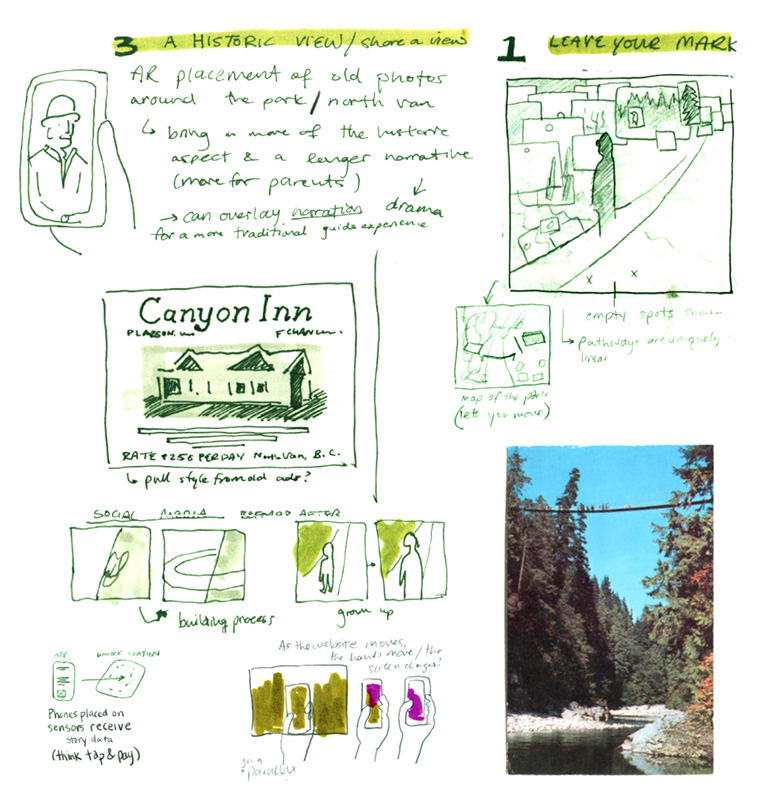 3 A HISTORIC VIEW / share a view
AR placement of old photos
around the park / north van
↳ bring in more of the historic
aspect & a longer narrative
(more for parents)
→ can overlay narration drama
for a more traditional guide experience
1 LEAVE YOUR MARK
x x
empty spots shown
↳ pathways are uniquely
linear
map of the park
(lets you move)
Canyon Inn
RATE $250 PER DAY North Van, B.C.
↳ pull style from old ads?
SOCIAL MEDIA BEFORE AFTER
building process
grow up
APP UNLOCK STATION
Phones placed on
sensors receive
story data
(think tap & pay)
As the website moves,
the hands move / the
screen changes?
parallax